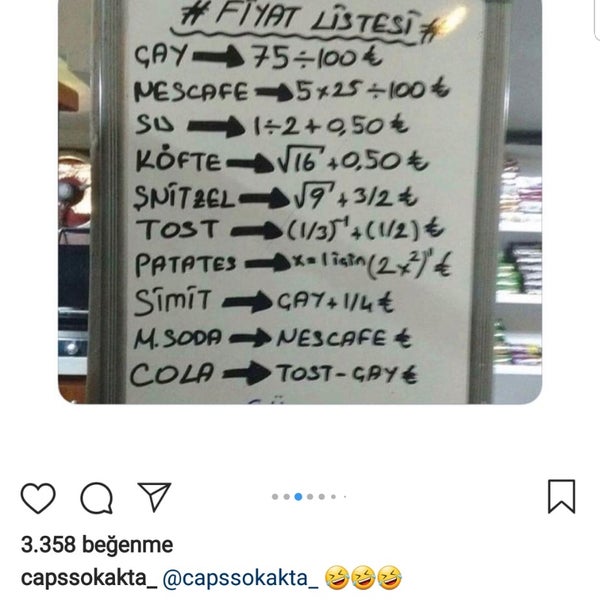 # FİYAT LİSTESİ #
ÇAY → 75÷100 ₺
NESCAFE → 5×25÷100 ₺
SU → 1÷2+0,50 ₺
KÖFTE → √16 +0,50 ₺
ŞNİTZEL → √9 + 3/2 ₺
TOST → (1/3)⁻¹+(1/2) ₺
PATATES → x=1 için (2x²)¹ ₺
SİMİT → ÇAY+1/4 ₺
M.SODA → NESCAFE ₺
COLA → TOST-ÇAY ₺
3.358 beğenme
capssokakta_ @capssokakta_ 🤣🤣🤣